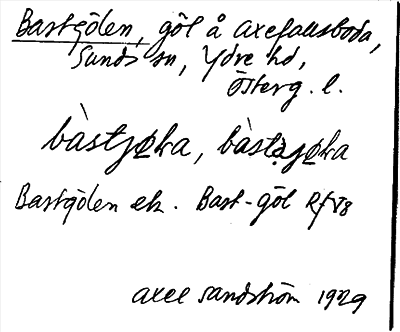 Bastgölen, göl å Axefallsboda,
Sunds sn, Ydre hd,
Österg. l.
bàstjøka, bàstạjøka
Bastgölen ek. Bast-göl Rf V8
Axel Sandström 1929